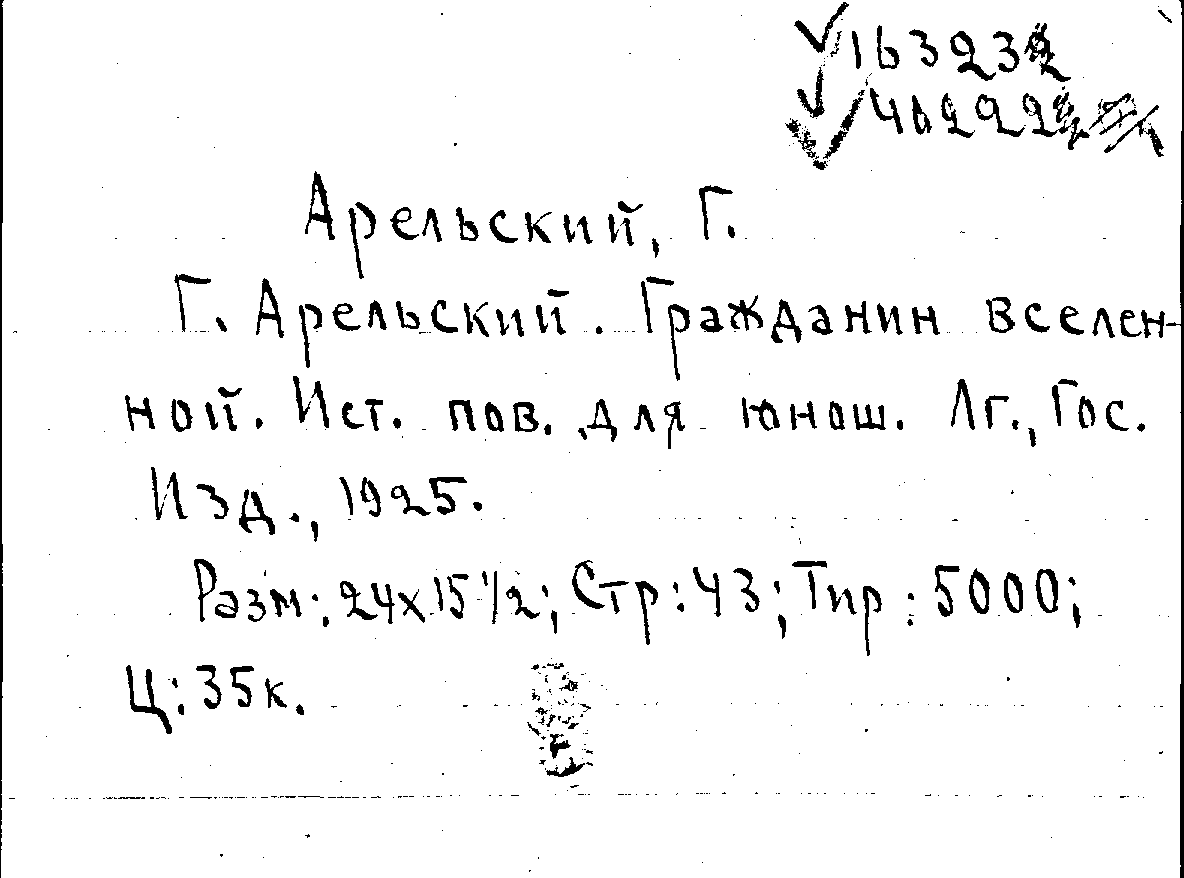 163232
Арельский, Г.
Г. Арельский. Гражданин вселен-
ной. Ист. пов. для юнош. Лг., Гос.
Изд., 1925.
Разм: 24x15 1/2; Стр: 43; Тир: 5000;
Ц: 35к.